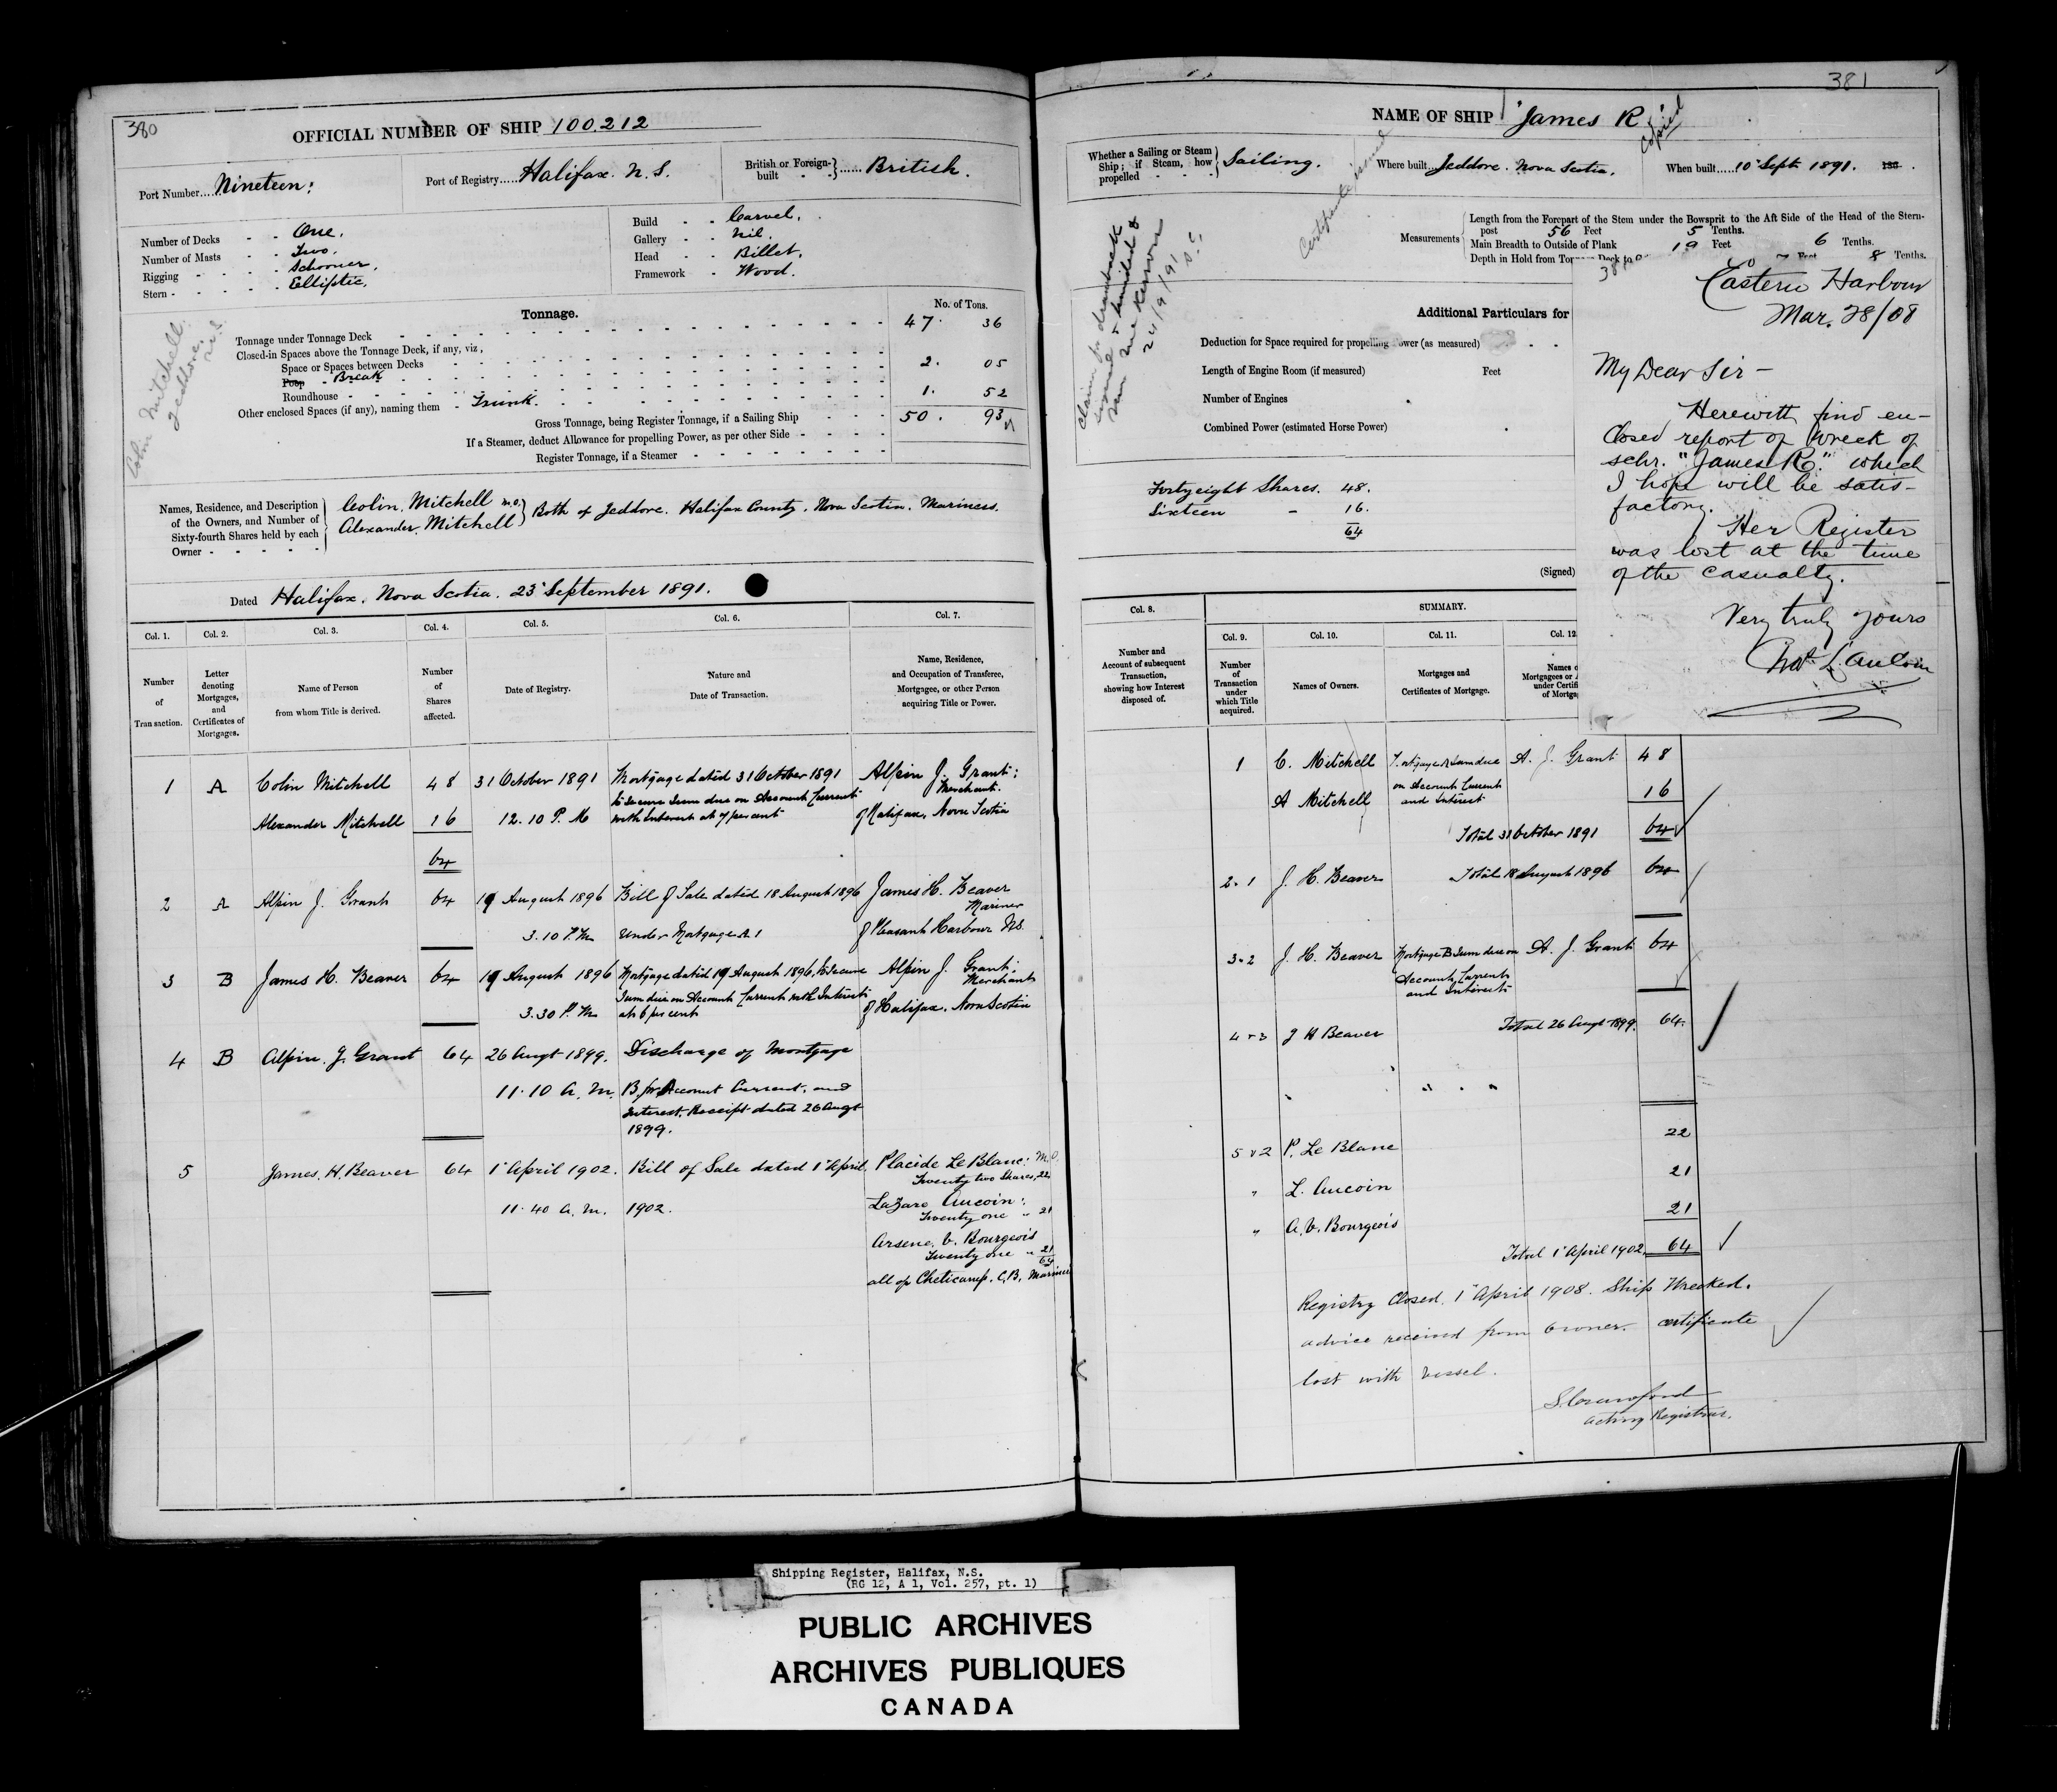 380
OFFICIAL NUMBER OF SHIP 100.212
Port Number....Nineteen:
Port of Registry.....Halifax. N. S.
British or Foreign-built - - }......British.
Number of Decks - - One.
Number of Masts - - Two.
Rigging - - - - Schooner.
Stern - - - - - Elliptic.
Build - - Carvel.
Gallery - - Nil.
Head - - Billet.
Framework - - Wood.
Colin Mitchell.
Jeddore.
N.S.
Tonnage.
No. of Tons.
Tonnage under Tonnage Deck 47. 36
Closed-in Spaces above the Tonnage Deck, if any, viz,
Space or Spaces between Decks
Poop - Break 2. 05
Roundhouse
Other enclosed Spaces (if any), naming them - Trunk. 1. 52
Gross Tonnage, being Register Tonnage, if a Sailing Ship 50. 93
If a Steamer, deduct Allowance for propelling Power, as per other Side
Register Tonnage, if a Steamer
Names, Residence, and Description
of the Owners, and Number of
Sixty-fourth Shares held by each
Owner
Colin. Mitchell M.O.
Alexander. Mitchell
Both of Jeddore. Halifax County. Nova Scotia. Mariners.
Dated Halifax. Nova Scotia. 23 September 1891.
Col. 1. Col. 2. Col. 3. Col. 4. Col. 5. Col. 6. Col. 7.
Number
of
Transaction.
Letter
denoting
Mortgages,
and
Certificates of
Mortgages.
Name of Person
from whom Title is derived.
Number
of
Shares
affected.
Date of Registry.
Nature and
Date of Transaction.
Name, Residence,
and Occupation of Transferee,
Mortgagee, or other Person
acquiring Title or Power.
1 A Colin Mitchell 48 31 October 1891 Mortgage dated 31 October 1891 Alpin J. Grant:
to secure Sum due on Account Current Merchant.
Alexander Mitchell 16 12.10 P. M with Interest at 7 per cent of Halifax, Nova Scotia
64
2 A Alpin J. Grant 64 19 August 1896 Bill of Sale dated 18 August 1896 James H. Beaver
Mariner
3.10 P.M under Mortgage A 1 of Pleasant Harbour NS.
3 B James H. Beaver 64 19 August 1896 Mortgage dated 19 August 1896, to secure Alpin J. Grant;
Sum due on Account Current with Interest Merchant
3.30 P.M at 6 per cent of Halifax. Nova Scotia
4 B Alpin. J. Grant 64 26 Augt 1899. Discharge of Mortgage
11.10 A. M. B for Account Current. and
Interest. Receipt dated 26 Augt
1899.
5 James. H. Beaver 64 1 April 1902. Bill of Sale dated 1 April Placide Le Blanc: M.O.
Twenty two Shares, 22
11.40 A. M. 1902. Lazare Aucoin:
Twenty one " 21
Arsene. V. Bourgeois
Twenty one " 21
64
all of Cheticamp. C.B. Mariners
381
NAME OF SHIP James R
Copied
Whether a Sailing or Steam
Ship; if Steam, how
propelled
Sailing.
Where built..Jeddore. Nova Scotia.
When built.....10 Sept 1891.
Certificate issued
Measurements
Length from the Forepart of the Stem under the Bowsprit to the Aft Side of the Head of the Stern-
post 56 Feet 5 Tenths.
Main Breadth to Outside of Plank 19 Feet 6 Tenths.
Depth in Hold from Tonnage Deck to 7 Feet 8 Tenths.
Claim for drawback
24/9/91
Additional Particulars for
Deduction for Space required for propelling Power (as measured)
Length of Engine Room (if measured) Feet
Number of Engines
Combined Power (estimated Horse Power)
Forty eight Shares. 48.
Sixteen - 16.
64
(Signed)
Eastern Harbour
Mar. 28/08
My Dear Sir -
Herewith find en-
closed report of wreck of
schr. "James R." which
I hope will be satis-
factory.
Her Register
was lost at the time
of the casualty.
Very truly yours
SUMMARY.
Col. 8. Col. 9. Col. 10. Col. 11. Col. 12
Number and
Account of subsequent
Transaction,
showing how Interest
disposed of.
Number
of
Transaction
under
which Title
acquired.
Names of Owners.
Mortgages and
Certificates of Mortgage.
Names o
Mortgagees or
under Certifi
of Mortga
1 C. Mitchell Mortgage A Sum due A. J. Grant 48
on Account Current
A Mitchell and Interest 16
Total 31 October 1891 64
2.1 J. H. Beaver Total 18 August 1896 64
3.2 J. H. Beaver Mortgage B Sum due on A. J. Grant 64
Account Current
and Interest
4 & 3 J H Beaver Total 26 Augt 1899. 64.
5 & 2 P. Le Blanc 22
" L. Aucoin 21
" A. V. Bourgeois 21
Total 1 April 1902 64
Registry Closed. 1 April 1908. Ship Wrecked.
advice received from Owner. certificate
lost with vessel.
S. Crawford
Acting Registrar.
Shipping Register, Halifax, N.S.
(RG 12, A 1, Vol. 257, pt. 1)
PUBLIC ARCHIVES
ARCHIVES PUBLIQUES
CANADA